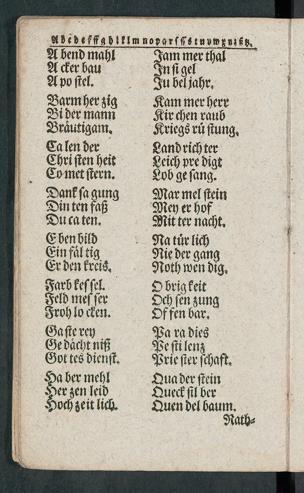 A b c d e f ff g h i k l m n o p q r ſ ſſ s t u v w x y z ß ꜩ.
A bend mahl
A cker bau
A po ſtel.
Barm her zig
Bi der mann
Bräutigam.
Ca len der
Chri ſten heit
Co met ſtern.
Dank ſa gung
Din ten faß
Du ca ten.
E ben bild
Ein fäl tig
Er den kreis.
Farb keſ ſel.
Feld meſ ſer
Froh lo cken.
Ga ſte rey
Ge dächt niß
Got tes dienſt.
Ha ber mehl
Her zen leid
Hoch zeit lich.
Jam mer thal
In ſi gel
Ju bel jahr.
Kam mer herr
Kir chen raub
Kriegs rü ſtung.
Land rich ter
Leich pre digt
Lob ge ſang.
Mar mel ſtein
Mey er hof
Mit ter nacht.
Na tür lich
Nie der gang
Noth wen dig.
O brig keit
Och ſen zung
Of fen bar.
Pa ra dies
Pe ſti lenz
Prie ſter ſchaft.
Qua der ſtein
Queck ſil ber
Quen del baum.
Rath-